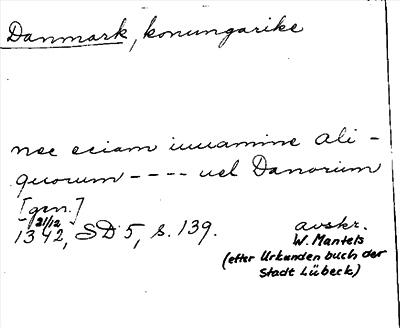 Danmark, konungarike
nec eciam iuuamine ali-
quorum ---- uel Danorum
[gen.]
21/12
1342, SD 5, s. 139.
avskr.
W. Mantels
(efter Urkundenbuch der
Stadt Lübeck)